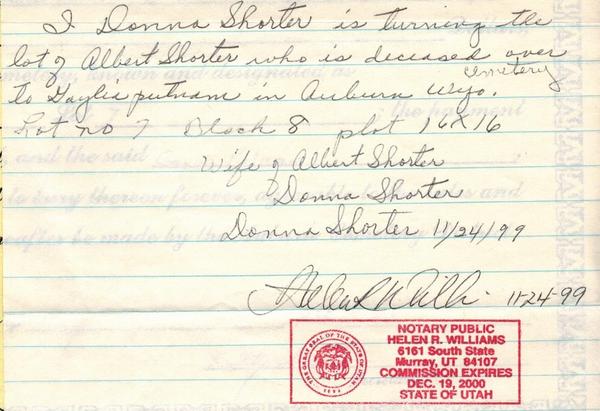 I Donna Shorter is turning the
lot of Albert Shorter who is deceased over
cemetery
to Gaylia putnam in Auburn Wyo.
Lot no 7 Block 8 plot 16x16
Wife of Albert Shorter
Donna Shorter
Donna Shorter 11/24/99
11-24-99
NOTARY PUBLIC
HELEN R. WILLIAMS
6161 South State
Murray, UT 84107
COMMISSION EXPIRES
DEC. 19, 2000
STATE OF UTAH
THE GREAT SEAL OF THE STATE OF UTAH
1896